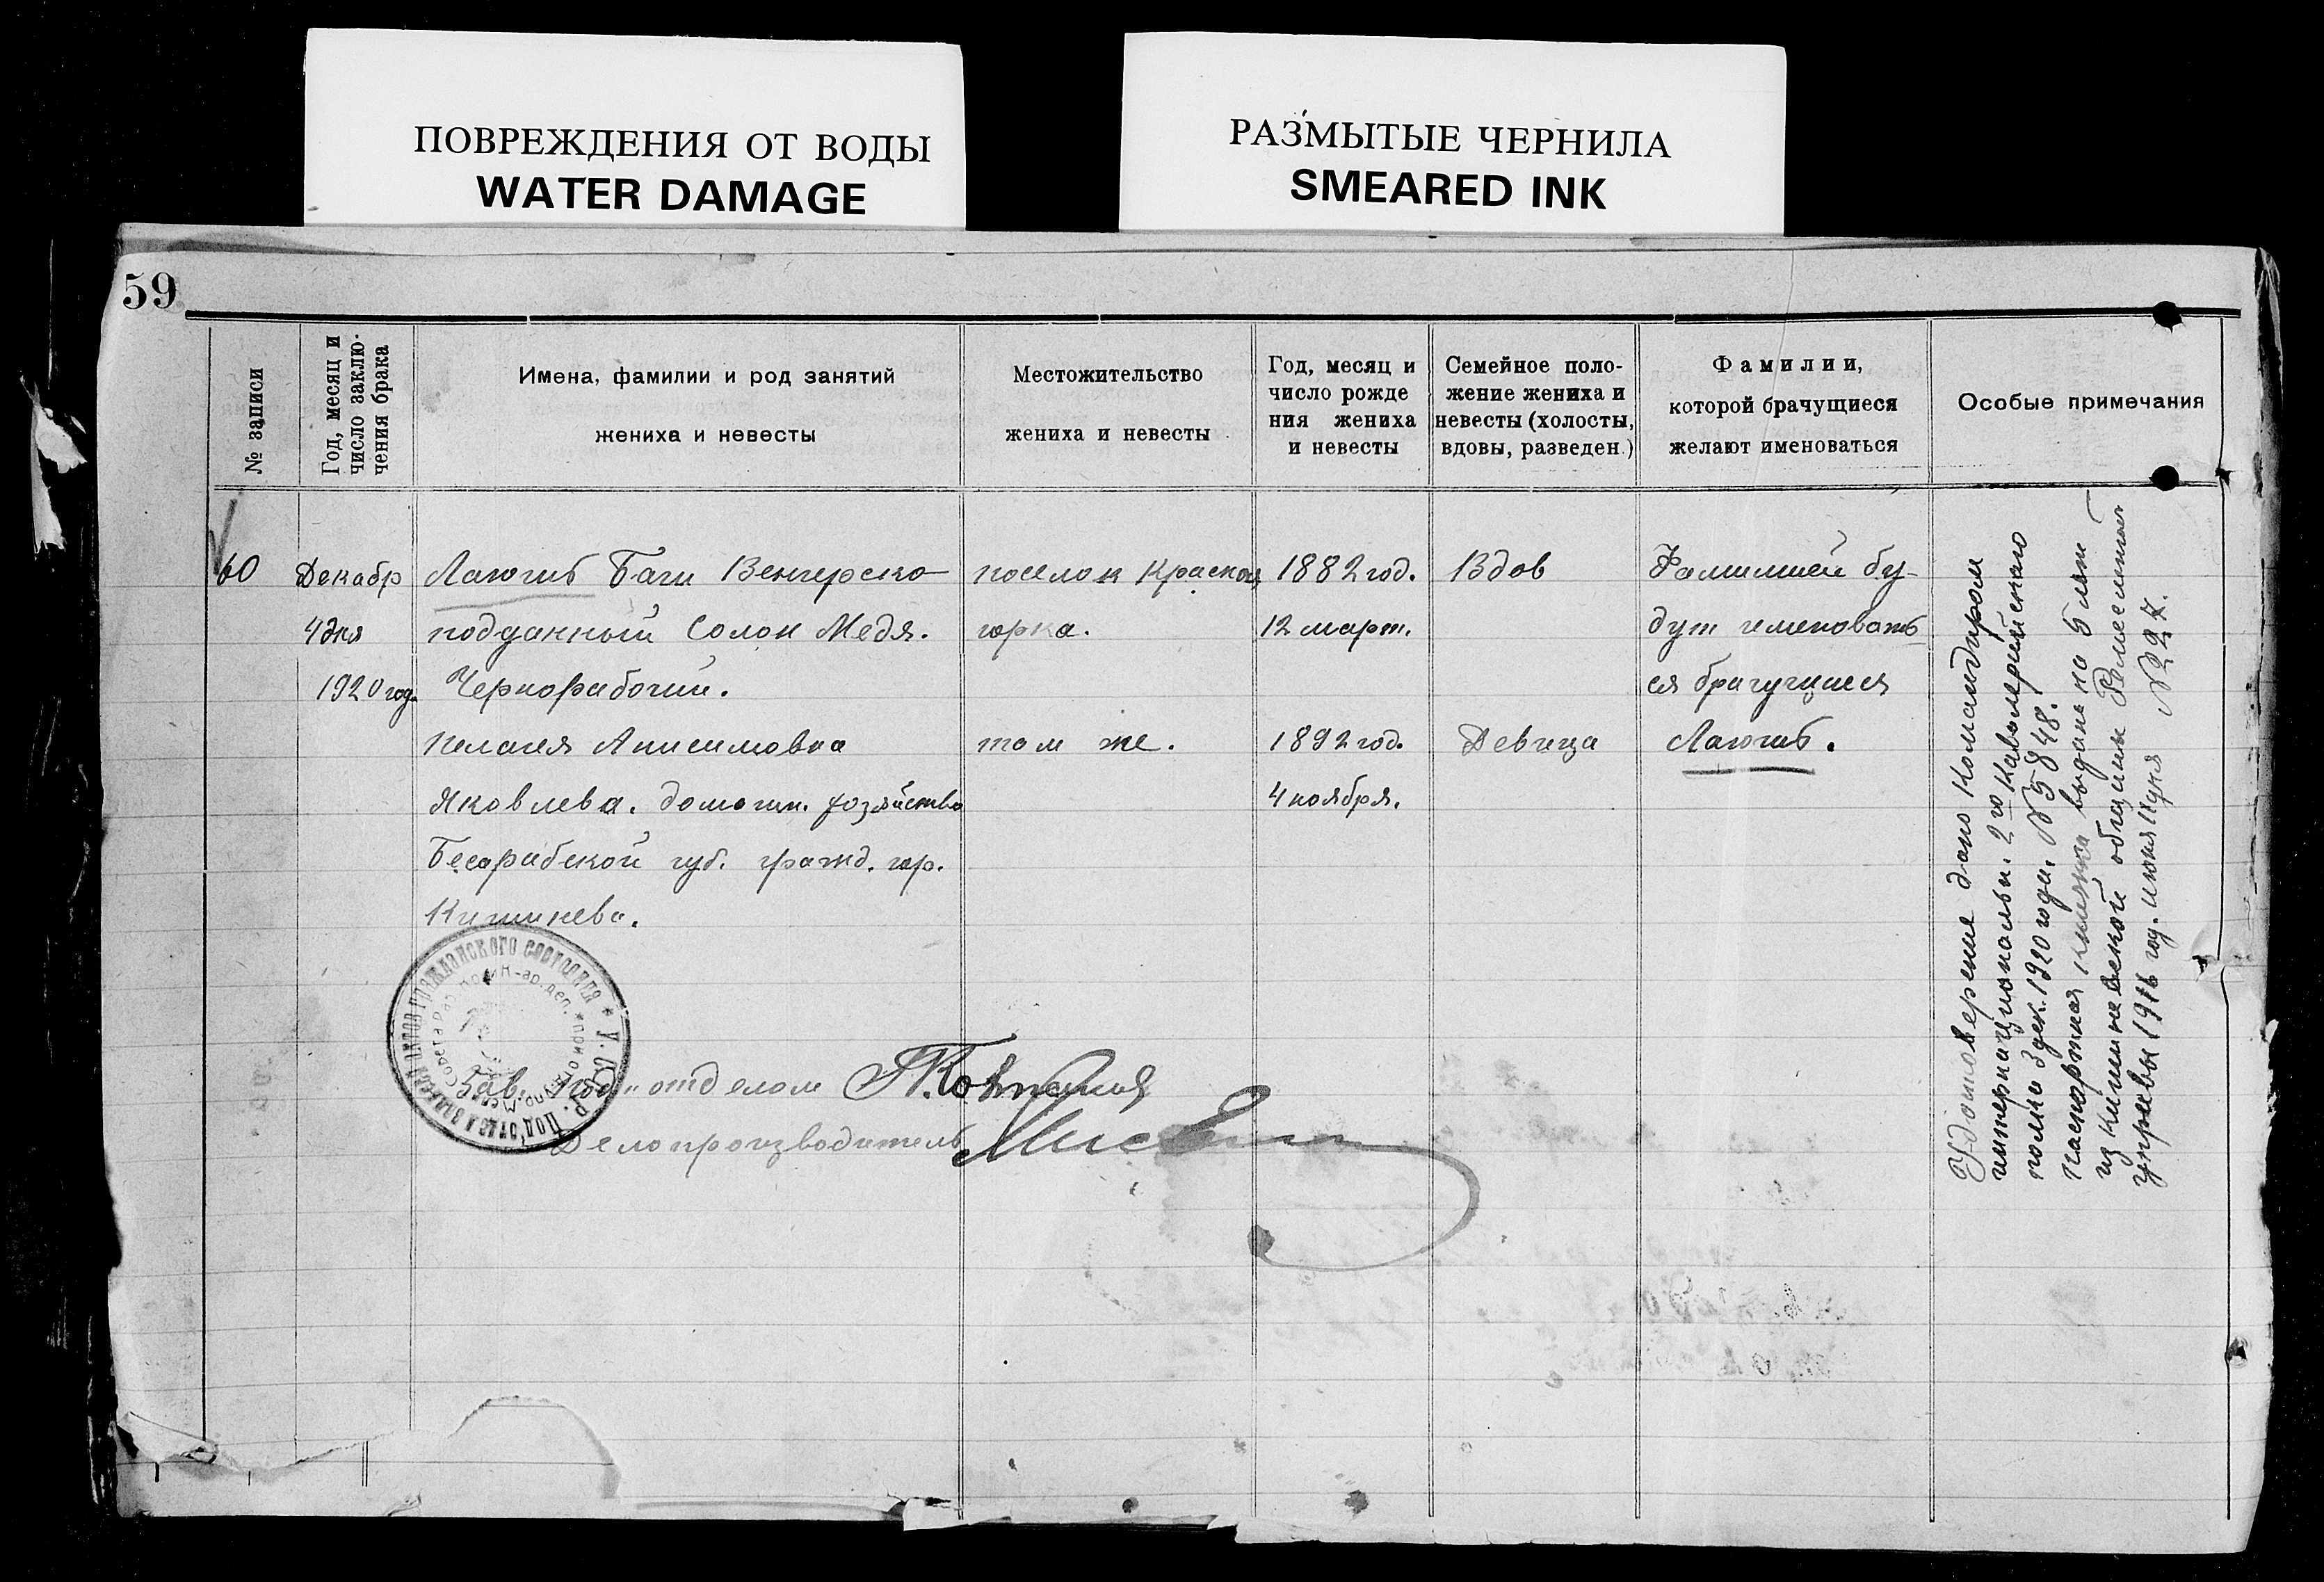 ПОВРЕЖДЕНИЯ ОТ ВОДЫ
WATER DAMAGE
РАЗМЫТЫЕ ЧЕРНИЛА
SMEARED INK
59
№ записи
Год, месяц и
число заклю-
чения брака
Имена, фамилии и род занятий
жениха и невесты
Местожительство
жениха и невесты
Год, месяц и
число рожде
ния жениха
и невесты
Семейное поло-
жение жениха и
невесты (холосты,
вдовы, разведен.)
Фамилии,
которой брачущиеся
желают именоваться
Особые примечания
60
Декабр
4 дня
1920 год.
Лаюгиб Баги Венгерско
подданный Солон Медя.
Чернорабочий.
Пелагея Анисимовна
Яковлева. домашн. хозяйство
Бесарабской губ. гражд. гор.
Кишинева.
поселок Красная
горка.
там же.
1882 год.
12 март.
1892 год.
4 ноября.
Вдов
Девица
Фамилией бу-
дут именовать
ся брачущиеся
Лаюгиб.
Удостоверение дано Командиром
интернациональн. 2го Кавалерийского
полка 3 дек. 1920 года. № 5848.
Паспортная книжка выдана на 5 лет
из Кишиневской общины Ремесленной
управы 1916 год. июня № 227.
Зав. под" отделом
Делопроизводитель
записей актов гражданского состояния * У.С.Р. Под'отдел